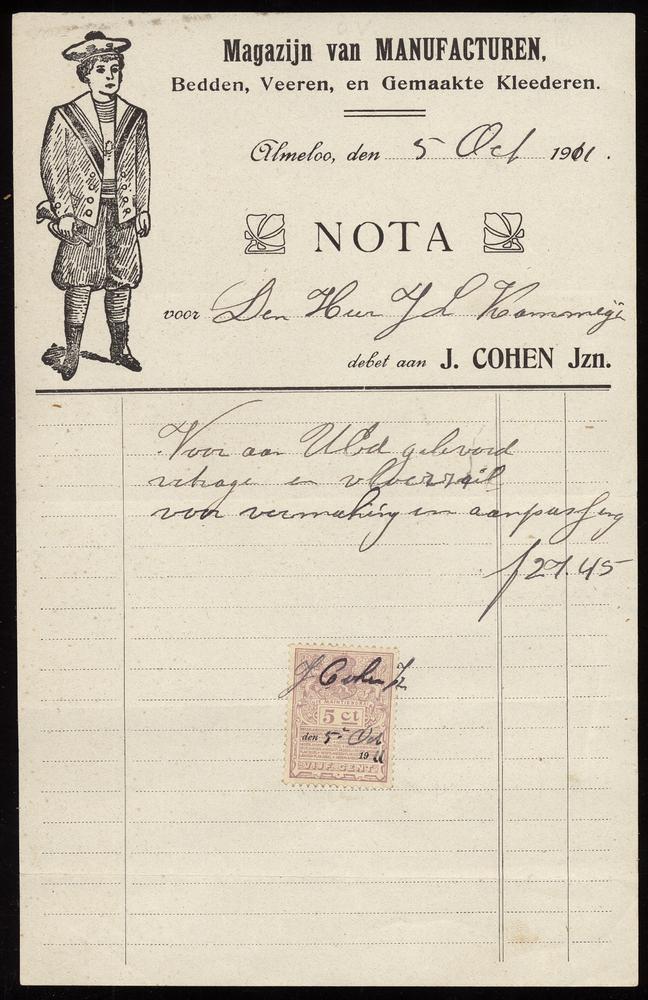 Magazijn van MANUFACTUREN,
Bedden, Veeren, en Gemaakte Kleederen.
Almeloo, den 5 Oct 1911.
NOTA
voor Den Heer J L
debet aan J. COHEN Jzn.
Voor aan UEd geleverd
vitrage en vloerzeil
voor vermaking en aanpassing
f 27.45
J Cohen Jz
5 ct
den 5 Oct
1911
VIJF CENT